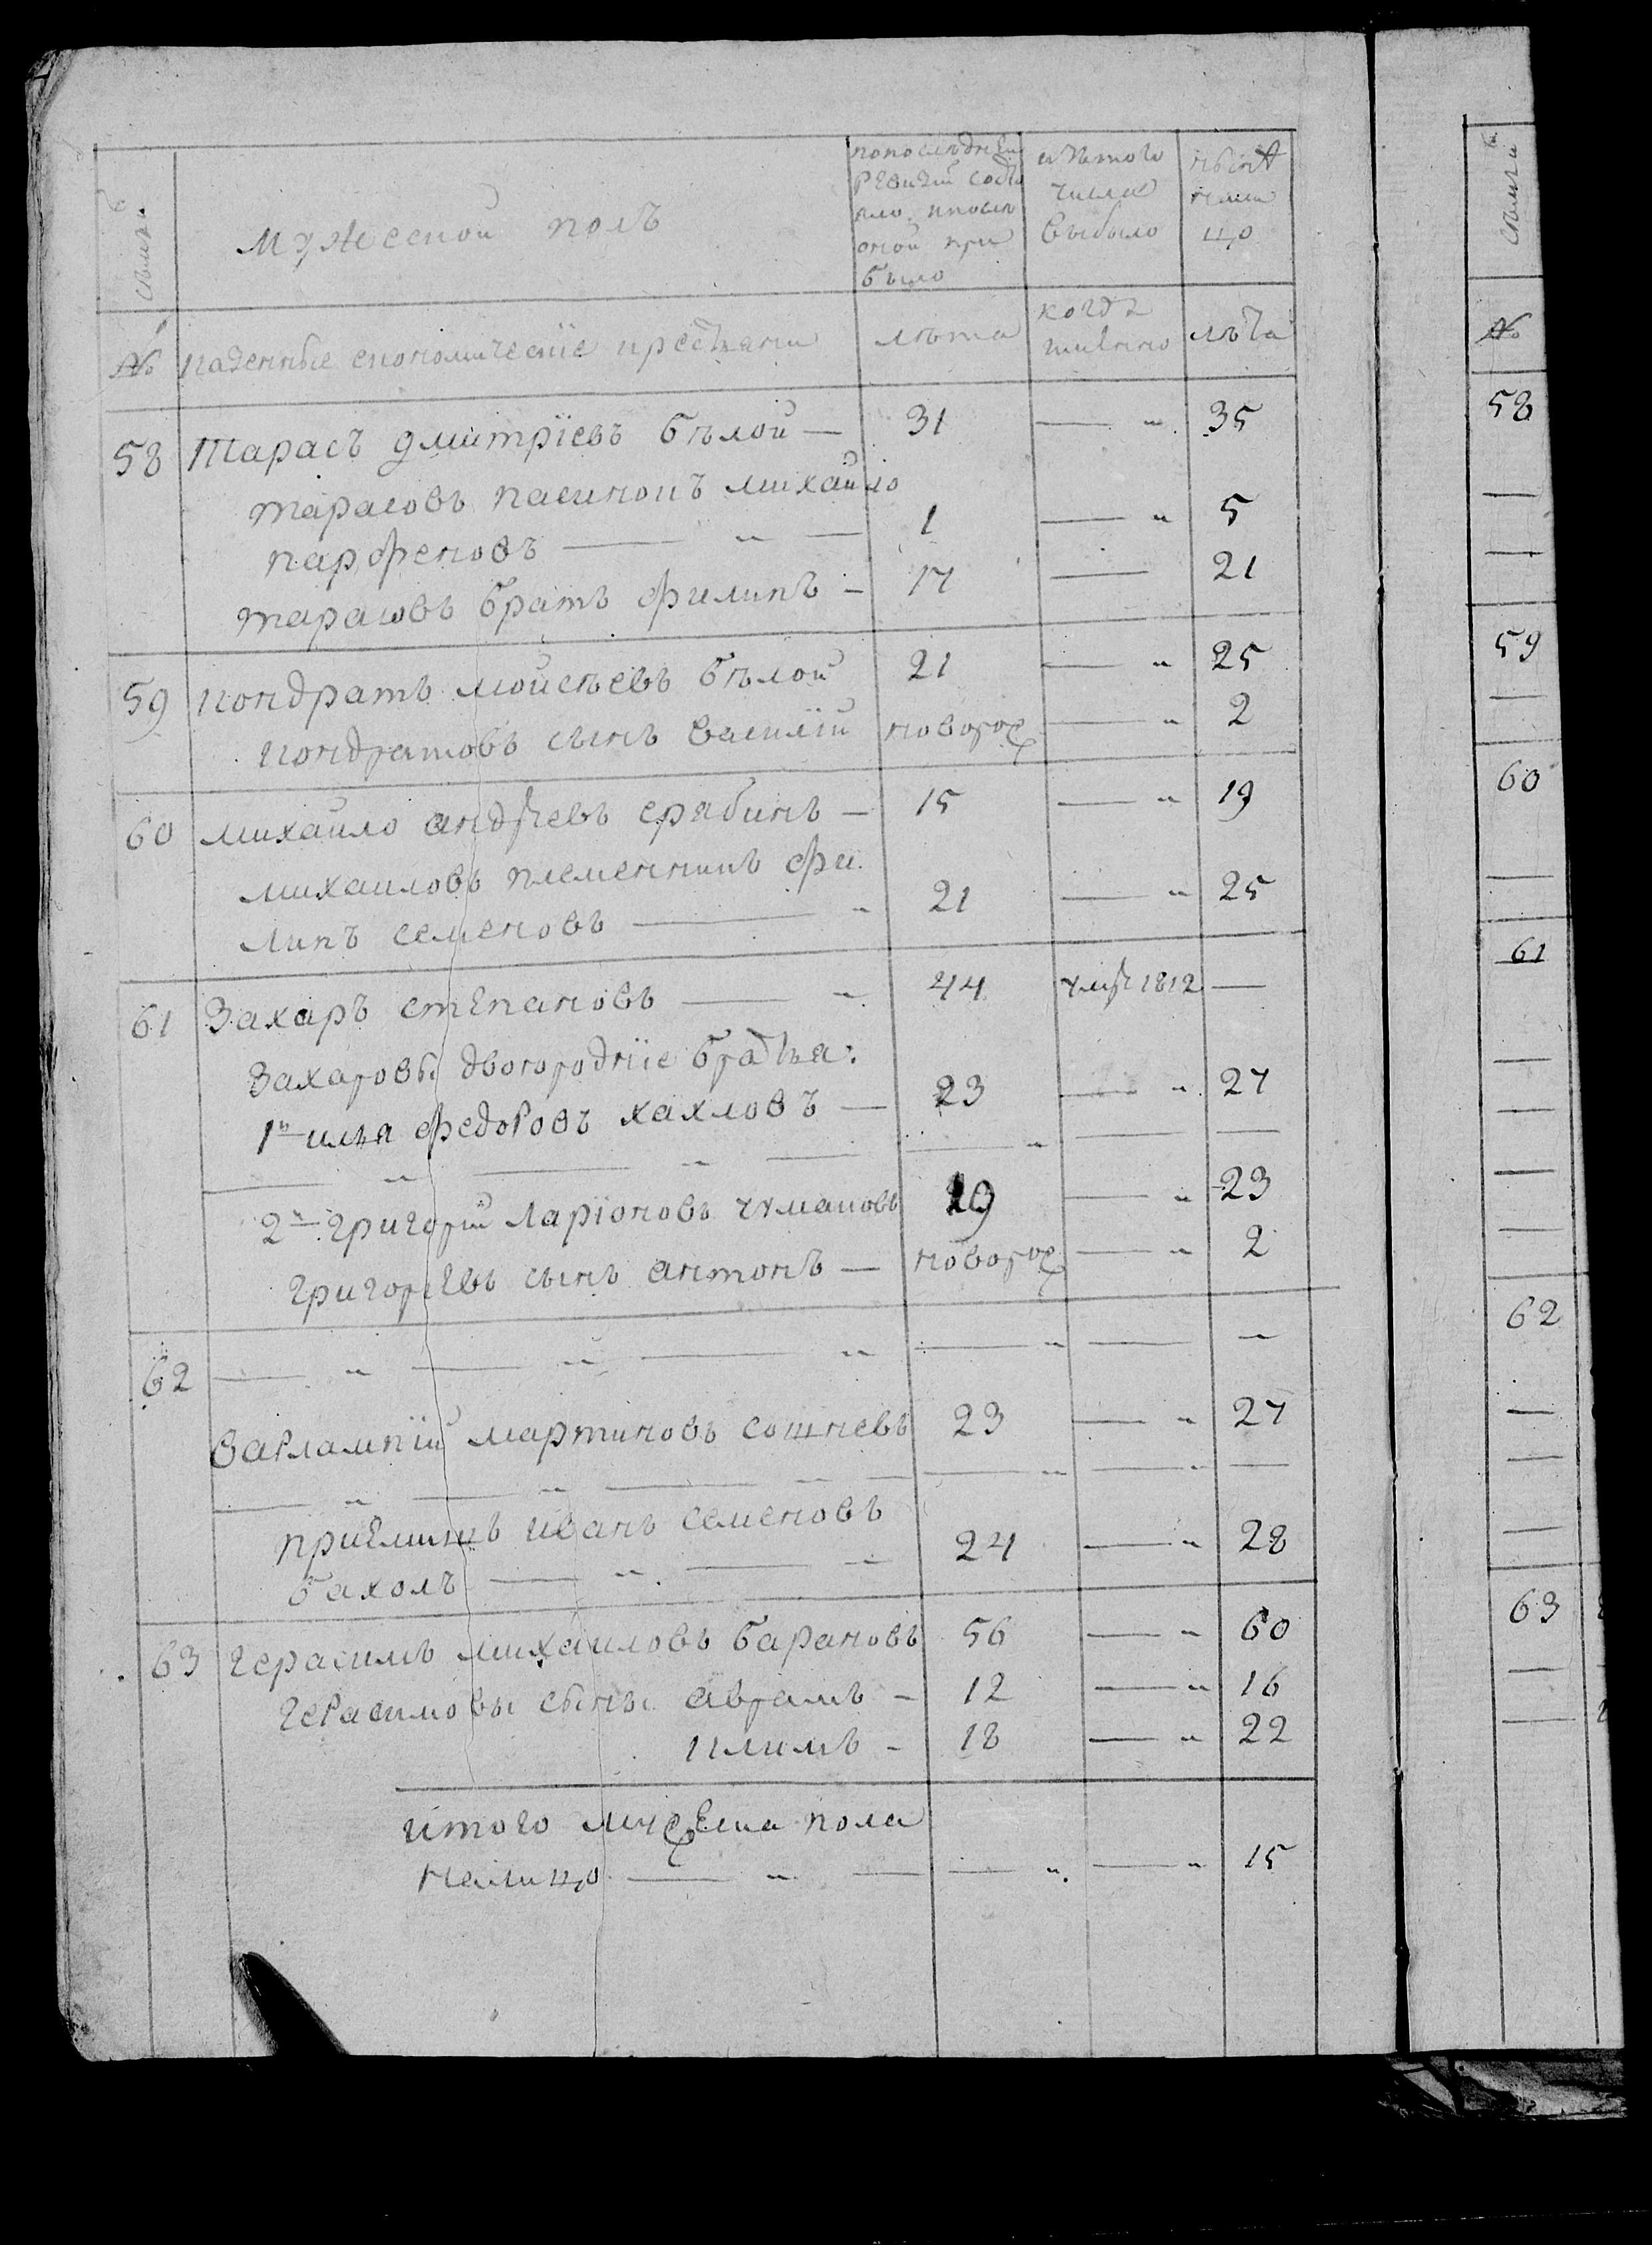 семьи
мужеской полъ
попоследней
ревизии состо
яло ипосле
оной при
было
изътого
числа
выбыло
ныне
нали
цо
№
казенные економическїе крестьяни
лѣта
когда
имянно
лѣта
58 Тарасъ дмитрїевъ бѣлой — 31 — " 35
тарасовъ пасинокъ михайло
парфеновъ — " — 1 — " 5
тарасовъ братъ филипъ — 17 — 21
59 кондратъ мойсѣевъ бѣлой 21 — " 25
кондратовъ сынъ василїй новорож — " 2
60 михайло андреевъ серябинъ — 15 — " 19
михаиловъ племенникъ фи
липъ семеновъ — " 21 — " 25
61 Захаръ степановъ — " 44 умре 1812 —
Захаровы двоюроднїе братья:
1й илья федоровъ хахловъ — 23 — " 27
— " — " — — " — —
2й григорий ларїоновъ чумаковъ 19 — " 23
григорьевъ сынъ антонъ — новорож — " 2
62 — " — " — " — " — —
Варлампїй мартиновъ сошневъ 23 — " 27
— " — " — " — — " — " —
приемишъ иванъ семеновъ
бахолъ — " — " 24 — " 28
63 герасимъ михаиловъ барановъ 56 — " 60
герасимовы сыны аврамъ — 12 — " 16
климъ — 18 — " 22
итого мужеска пола
налицо — " — — " — " 15
семьи
№
58
—
—
59
—
60
—
61
—
—
—
—
62
—
—
—
63
—
—